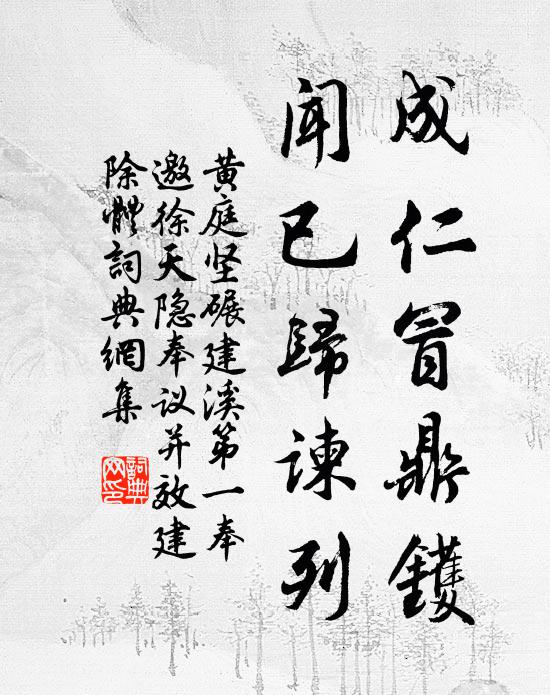 成仁冒鼎鑊
闻已歸谏列
黄庭坚碾建溪第一奉
邀徐天隐奉议并效建
除體詞典網集
詞典網印